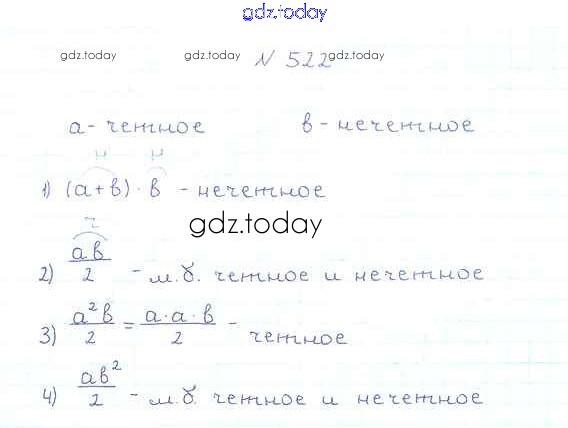 gdz.today
gdz.today gdz.today N 522 gdz.today
а - четное в - нечетное
н н
1) (а+в) · в - нечетное
gdz.today
ч
2) ав/2 - м.б. четное и нечетное
3) а²в/2 = а·а·в/2 - четное
4) ав²/2 - м.б. четное и нечетное